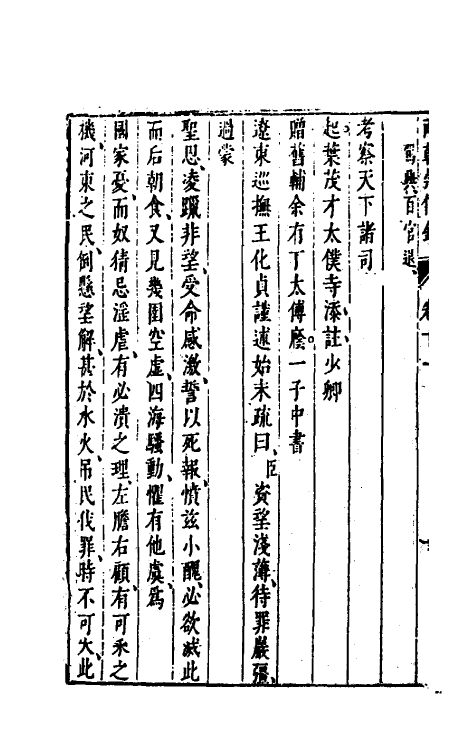 駕興百官退
考察天下諸司
起葉茂才太僕寺添註少卿
贈舊輔余有丁太傅廕一子中書
遼東巡撫王化貞謹述始末疏曰臣資望淺薄待罪嚴疆
過蒙
聖恩凌躐非望受命感激誓以死報憤茲小醜必欲滅此
而后朝食又見幾圉空虛四海騷動懼有他虞為
國家憂而奴猜忌淫虐有必潰之理左瞻右顧有可乘之
機河東之民倒懸望解甚於水火吊民伐罪時不可失此